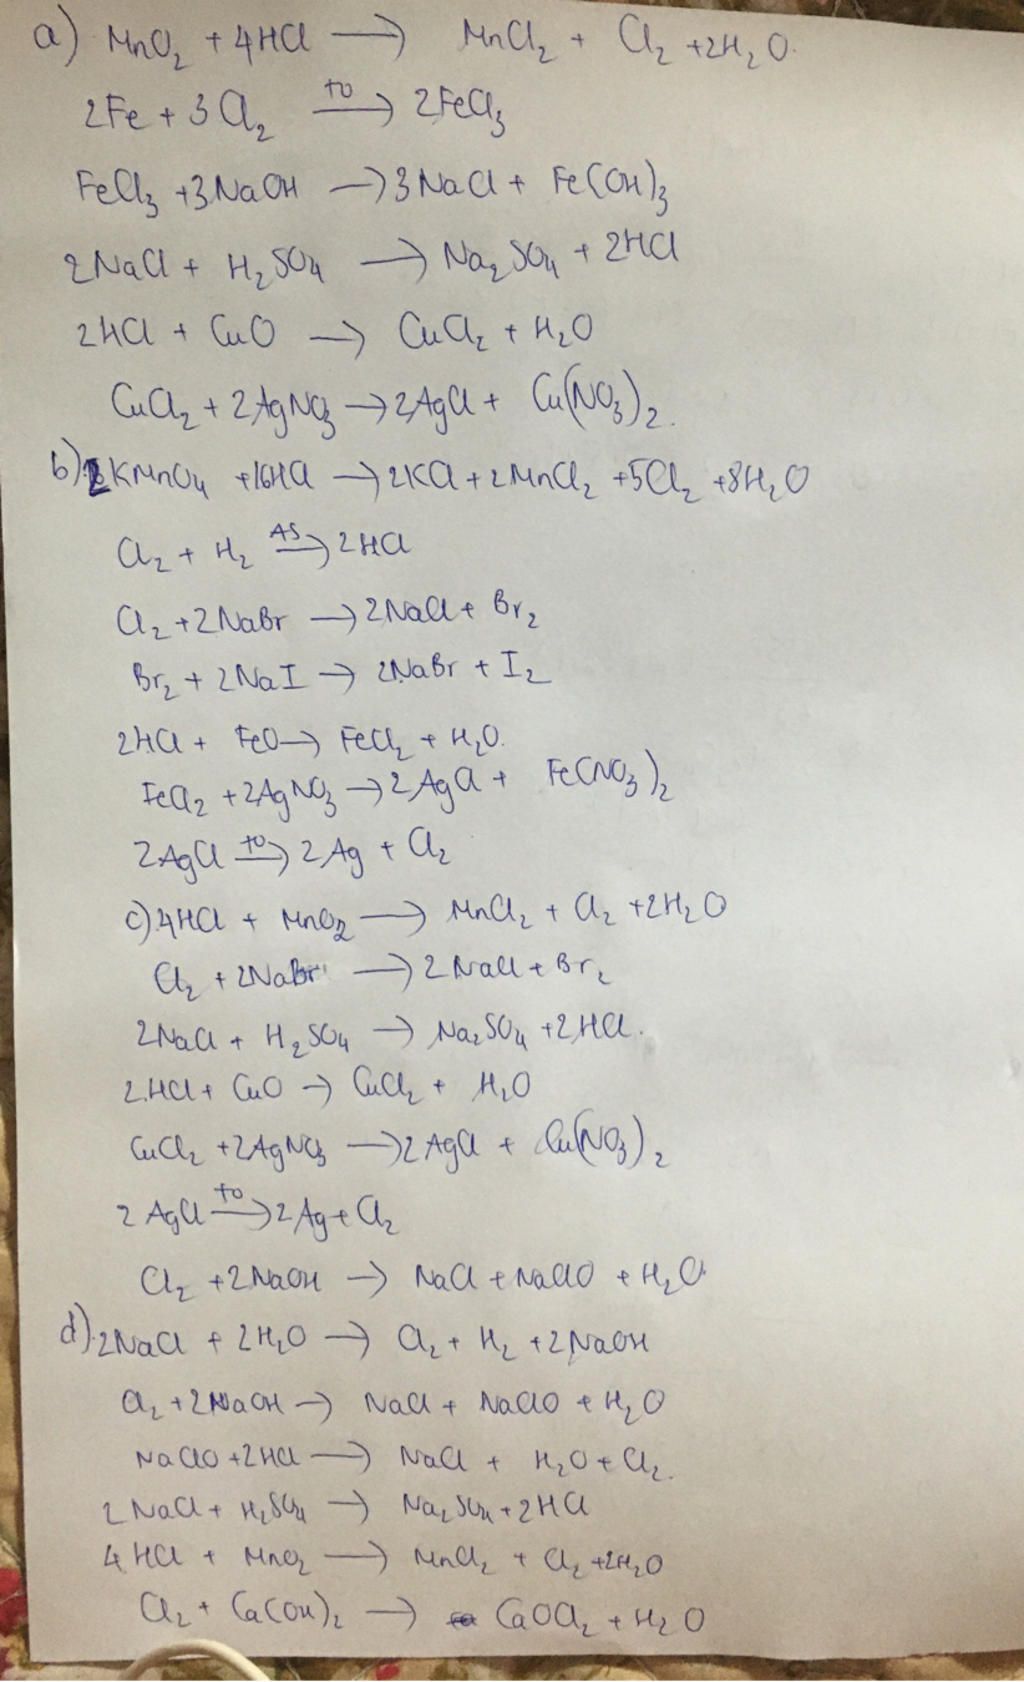 a) MnO₂ + 4HCl → MnCl₂ + Cl₂ + 2H₂O.
2Fe + 3Cl₂ →(t⁰) 2FeCl₃
FeCl₃ + 3NaOH → 3NaCl + Fe(OH)₃
2NaCl + H₂SO₄ → Na₂SO₄ + 2HCl
2HCl + CuO → CuCl₂ + H₂O
CuCl₂ + 2AgNO₃ → 2AgCl + Cu(NO₃)₂.
b) 2KMnO₄ + 16HCl → 2KCl + 2MnCl₂ + 5Cl₂ + 8H₂O
Cl₂ + H₂ →(AS) 2HCl
Cl₂ + 2NaBr → 2NaCl + Br₂
Br₂ + 2NaI → 2NaBr + I₂
2HCl + FeO → FeCl₂ + H₂O.
FeCl₂ + 2AgNO₃ → 2AgCl + Fe(NO₃)₂
2AgCl →(t⁰) 2Ag + Cl₂
c) 4HCl + MnO₂ → MnCl₂ + Cl₂ + 2H₂O
Cl₂ + 2NaBr → 2NaCl + Br₂
2NaCl + H₂SO₄ → Na₂SO₄ + 2HCl.
2HCl + CuO → CuCl₂ + H₂O
CuCl₂ + 2AgNO₃ → 2AgCl + Cu(NO₃)₂
2AgCl →(t⁰) 2Ag + Cl₂
Cl₂ + 2NaOH → NaCl + NaClO + H₂O
d) 2NaCl + 2H₂O → Cl₂ + H₂ + 2NaOH
Cl₂ + 2NaOH → NaCl + NaClO + H₂O
NaClO + 2HCl → NaCl + H₂O + Cl₂.
2NaCl + H₂SO₄ → Na₂SO₄ + 2HCl
4HCl + MnO₂ → MnCl₂ + Cl₂ + 2H₂O
Cl₂ + Ca(OH)₂ → CaOCl₂ + H₂O